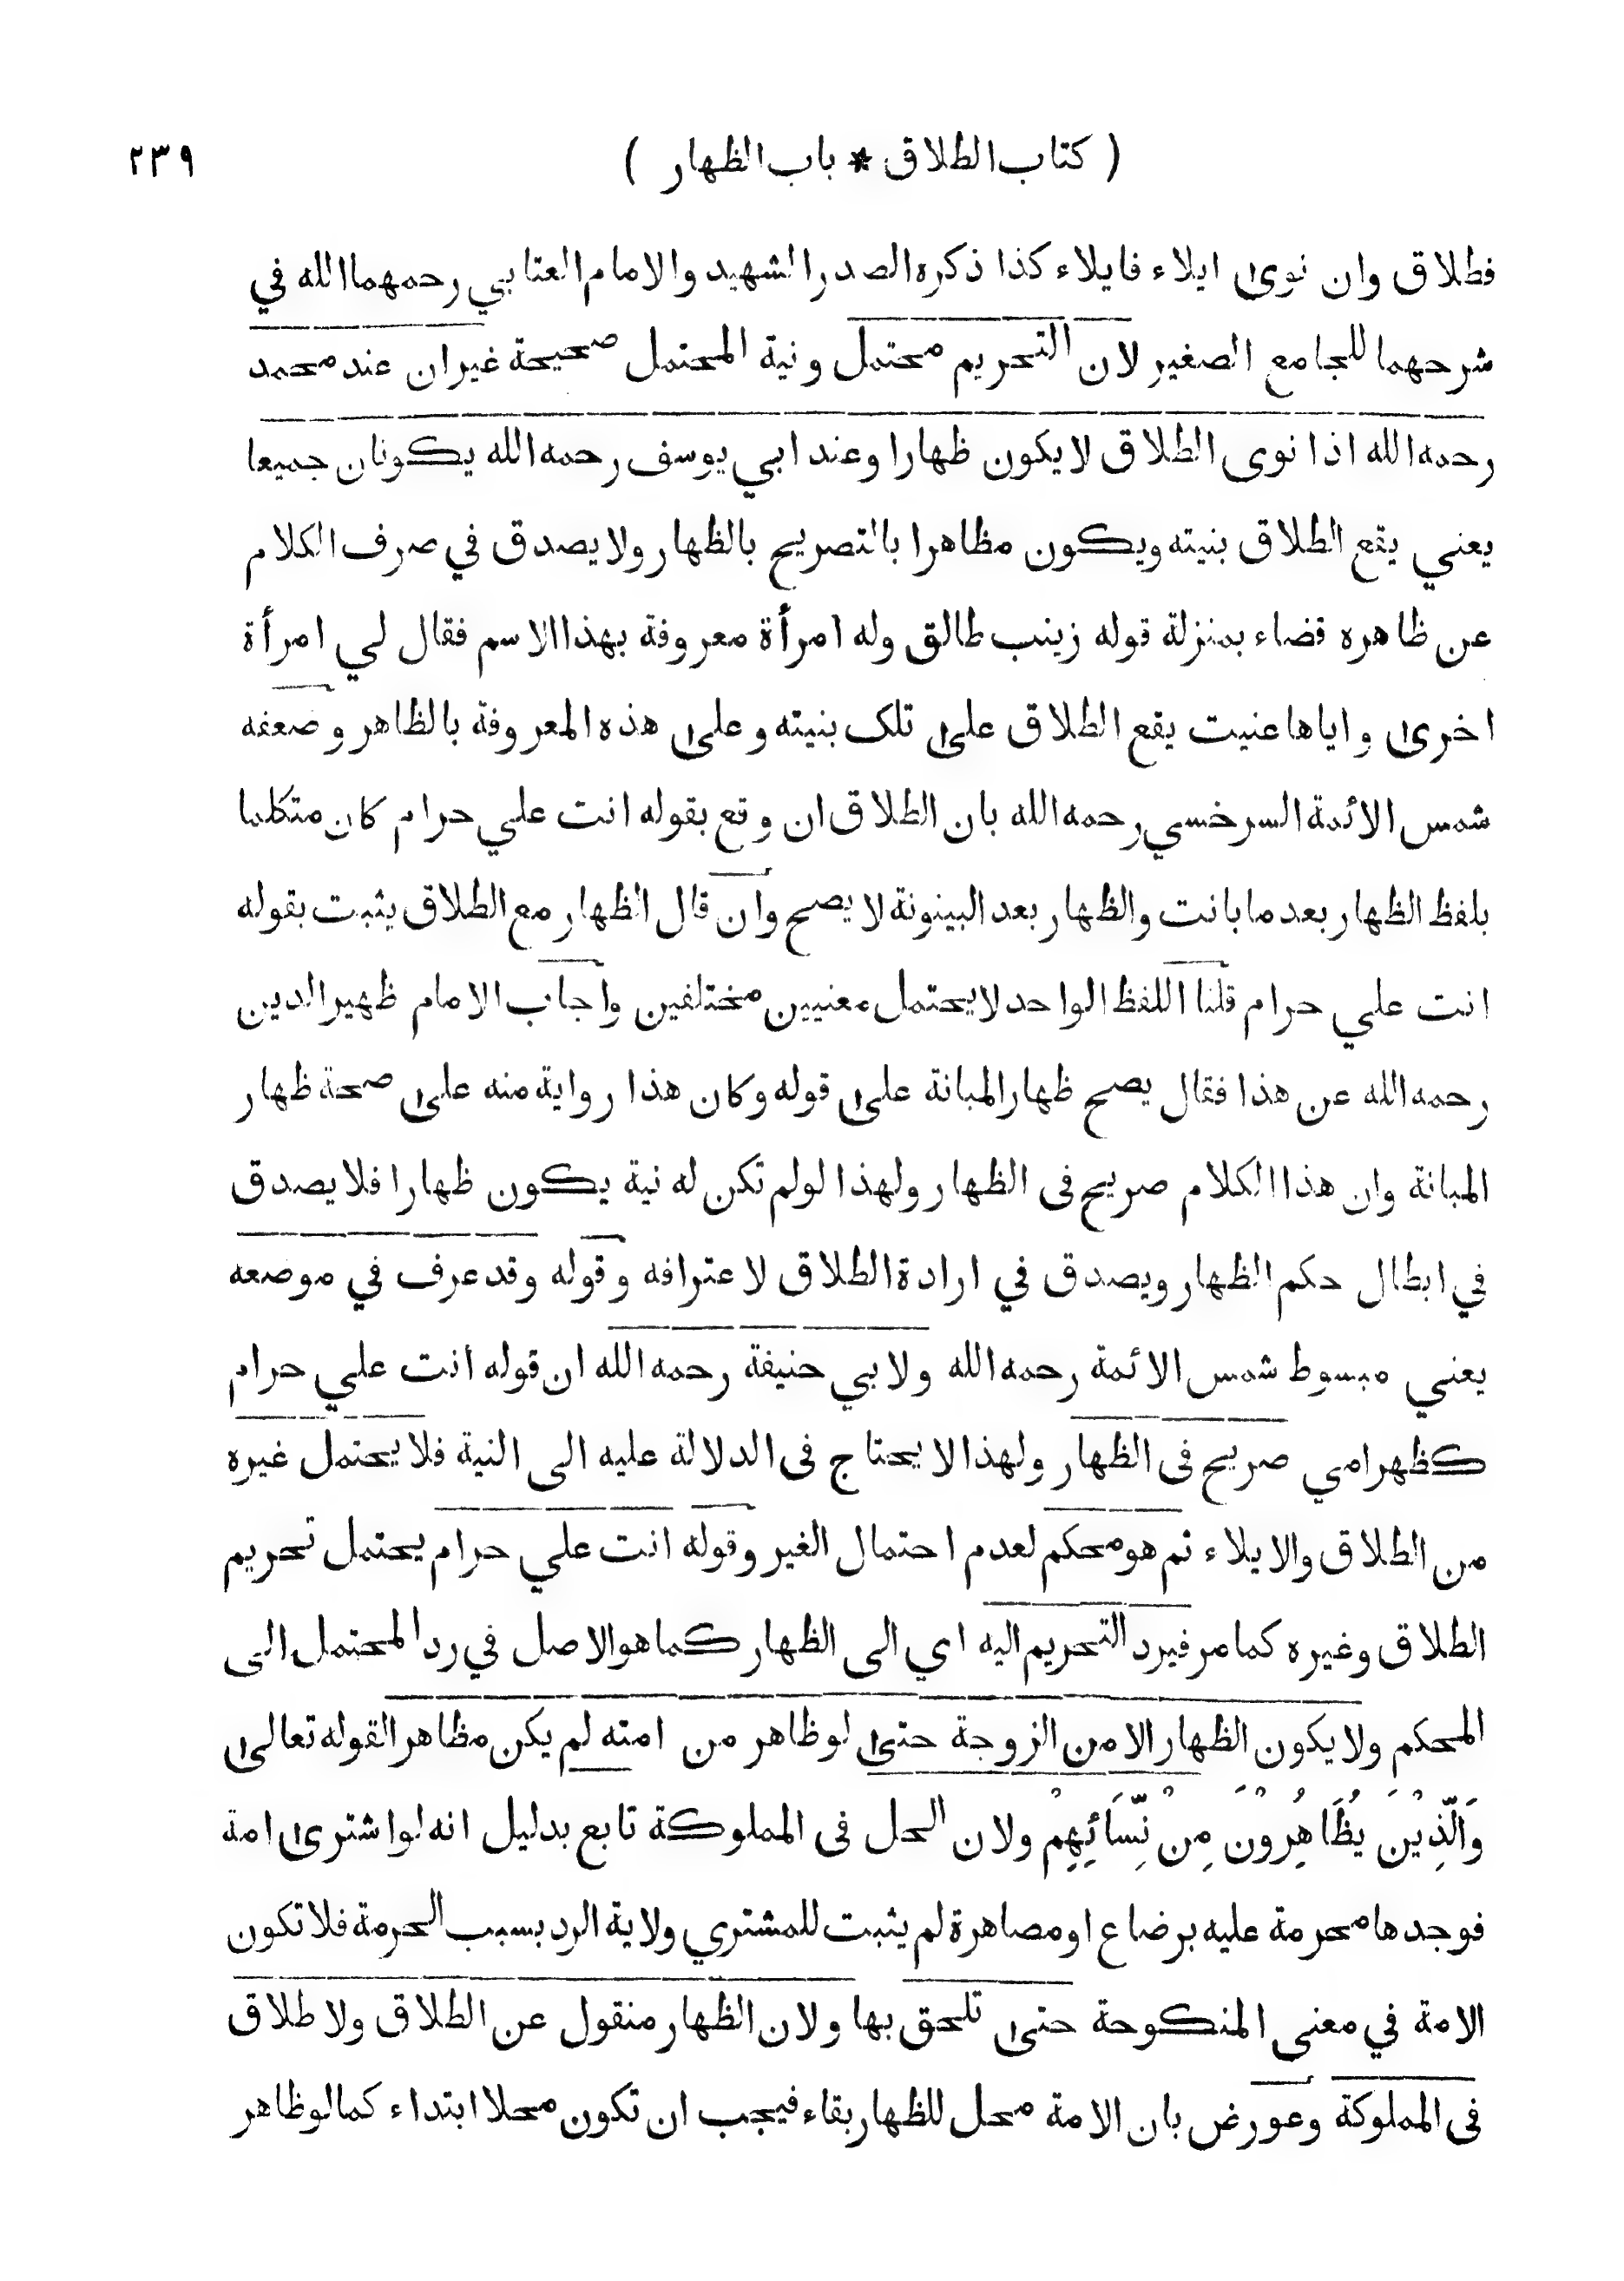 ( كتاب الطلاق * باب الظهار ) ٢٣٩
فطلاق وان نوى ايلاء فايلاء كذا ذكره الصدر الشهيد والامام العتابي رحمهما الله في
شرحهما للجامع الصغير لان التحريم محتمل ونية المحتمل صحيحة غير ان عند محمد
رحمه الله اذا نوى الطلاق لا يكون ظهارا وعند ابي يوسف رحمه الله يكونان جميعا
يعني يقع الطلاق بنيته ويكون مظاهرا بالتصريح بالظهار ولا يصدق في صرف الكلام
عن ظاهره قضاء بمنزلة قوله زينب طالق وله امرأة معروفة بهذا الاسم فقال لي امرأة
اخرى واياها عنيت يقع الطلاق على تلك بنيته وعلى هذه المعروفة بالظاهر وضعفه
شمس الائمة السرخسي رحمه الله بان الطلاق ان وقع بقوله انت علي حرام كان متكلما
بلفظ الظهار بعد ما بانت والظهار بعد البينونة لا يصح وان قال الظهار مع الطلاق يثبت بقوله
انت علي حرام قلنا اللفظ الواحد لا يحتمل معنيين مختلفين واجاب الامام ظهير الدين
رحمه الله عن هذا فقال يصح ظهار المبانة على قوله وكان هذا رواية منه على صحة ظهار
المبانة وان هذا الكلام صريح فى الظهار ولهذا لو لم تكن له نية يكون ظهارا فلا يصدق
في ابطال حكم الظهار ويصدق في ارادة الطلاق لاعترافه وقوله وقد عرف في موضعه
يعني مبسوط شمس الائمة رحمه الله ولابي حنيفة رحمه الله ان قوله انت علي حرام
كظهر امي صريح فى الظهار ولهذا لا يحتاج فى الدلالة عليه الى النية فلا يحتمل غيره
من الطلاق والايلاء ثم هو محكم لعدم احتمال الغير وقوله انت علي حرام يحتمل تحريم
الطلاق وغيره كما مر فيرد التحريم اليه اي الى الظهار كما هو الاصل في رد المحتمل الى
المحكم ولا يكون الظهار الا من الزوجة حتى لو ظاهر من امته لم يكن مظاهرا لقوله تعالى
وَالَّذِيْنَ يُظَاهِرُوْنَ مِنْ نِّسَائِهِمْ ولان الحل فى المملوكة تابع بدليل انه لو اشترى امة
فوجدها محرمة عليه برضاع او مصاهرة لم يثبت للمشتري ولاية الرد بسبب الحرمة فلا تكون
الامة في معنى المنكوحة حتى تلحق بها ولان الظهار منقول عن الطلاق ولا طلاق
فى المملوكة وعورض بان الامة محل للظهار بقاء فيجب ان تكون محلا ابتداء كما لو ظاهر